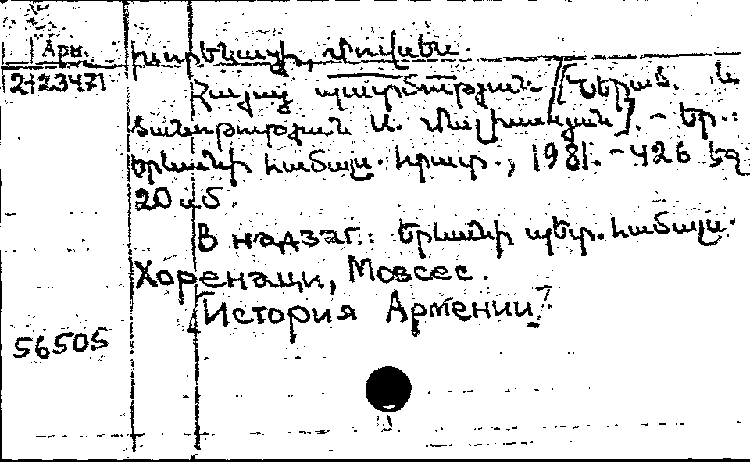 Арм. Խորենացի, Մովսես.
2423471 Հայոց պատմություն / [Ներած. և
ծանոթություն Ս. Մալխասյան]. - Եր.:
Երևանի համալս. հրատ., 1981. - 426 էջ
20 սմ.
В надзаг.: Երևանի պետ. համալս.
Хоренаци, Мовсес.
[История Армении].
56505